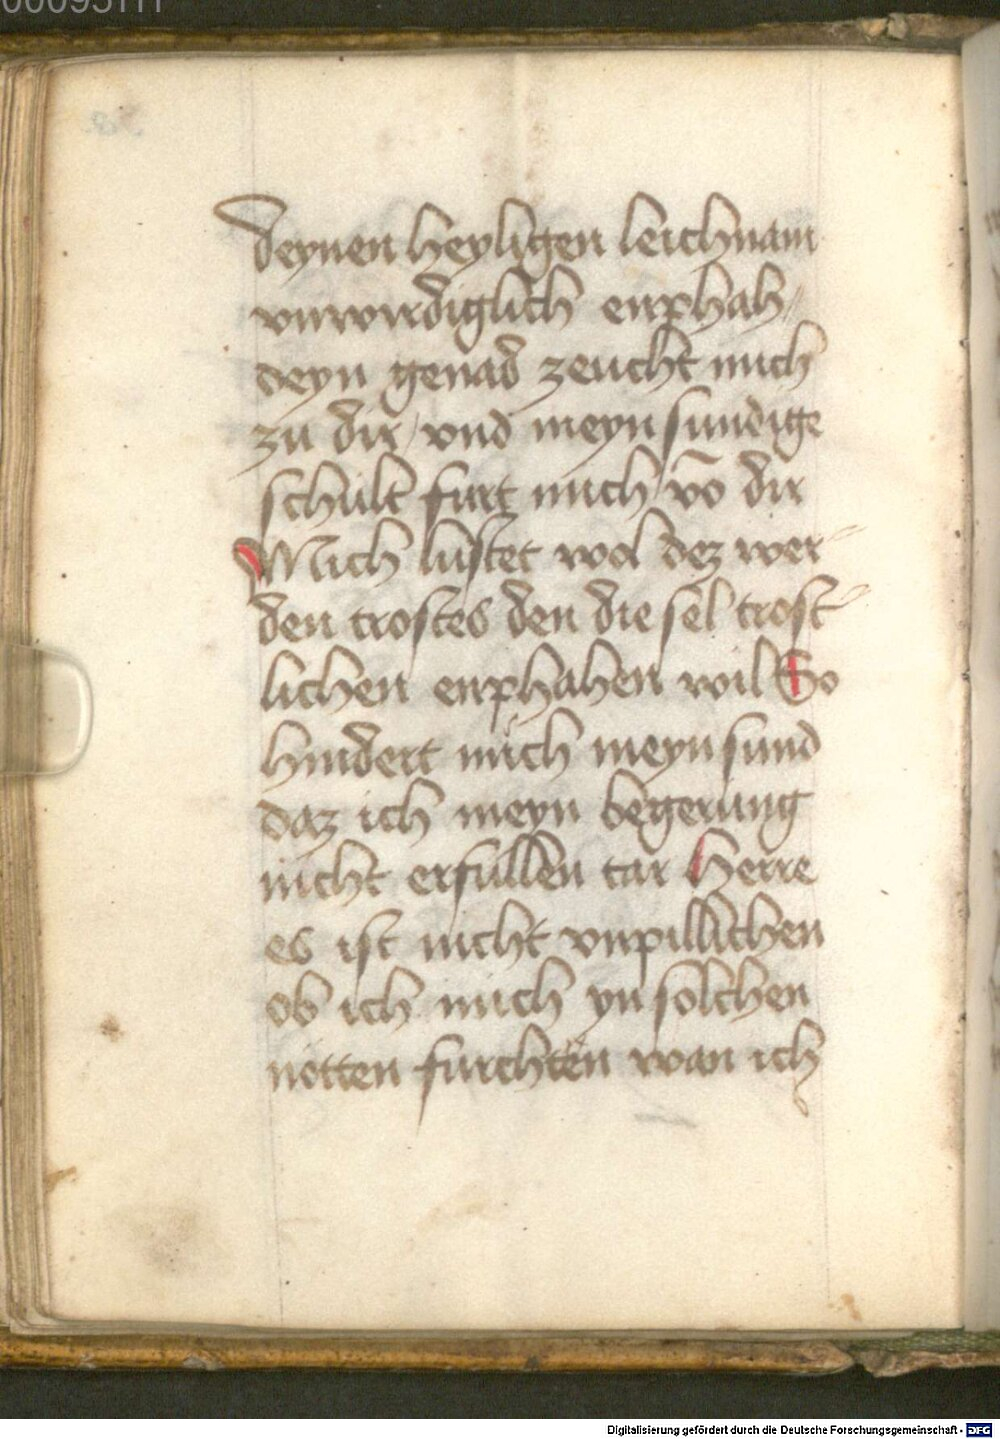 deynen heyligen leichnam
vnwirdiglich enphah /
deyn genad zeucht mich
zu dir / vnd meyn sundige
schult furt mich vō dir
Mich lustet wol dez wer
den trostes den die sel trost
lichen enphahen wil So
hindert mich meyn sund
daz ich meyn begerung
nicht erfullen tar Herre
es ist nicht vnpillichen
ob ich mich yn solchen
nötten furchten wan ich
Digitalisierung gefördert durch die Deutsche Forschungsgemeinschaft - DFG